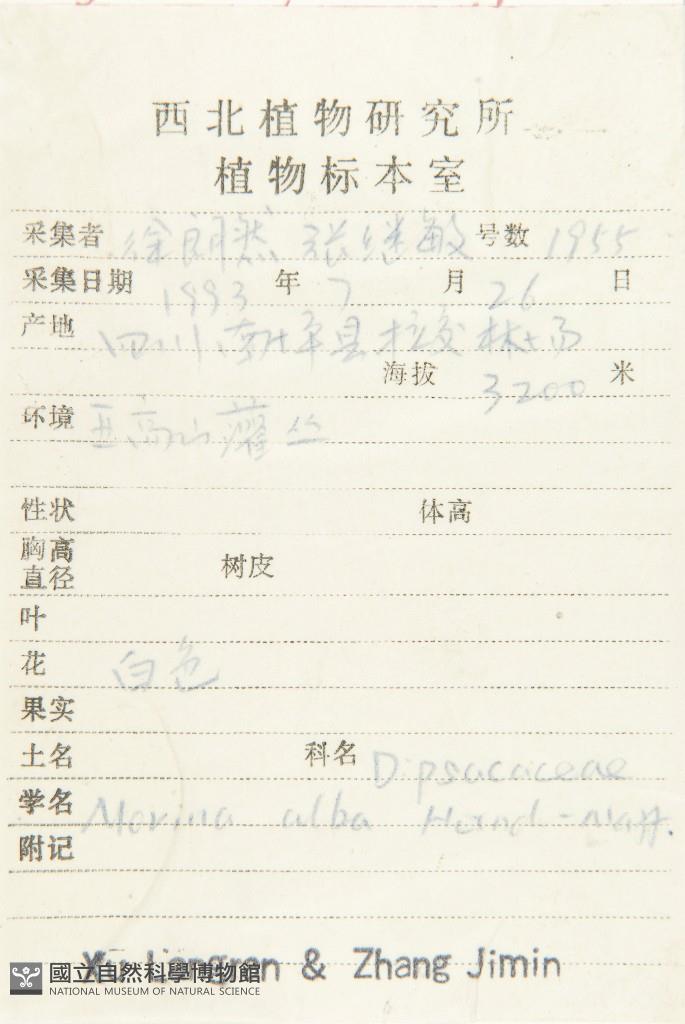 西北植物研究所
植物标本室
采集者 徐朗然 张继敏 号数 1955
采集日期 1993 年 7 月 26 日
产地 四川 县 林场
海拔 3200 米
环境 亚高山灌丛
性状 体高
胸高直径 树皮
叶
花 白色
果实
土名 科名 Dipsacaceae
学名 Morina alba Hand-Mazz.
附记
Xu Langran & Zhang Jimin
國立自然科學博物館
NATIONAL MUSEUM OF NATURAL SCIENCE